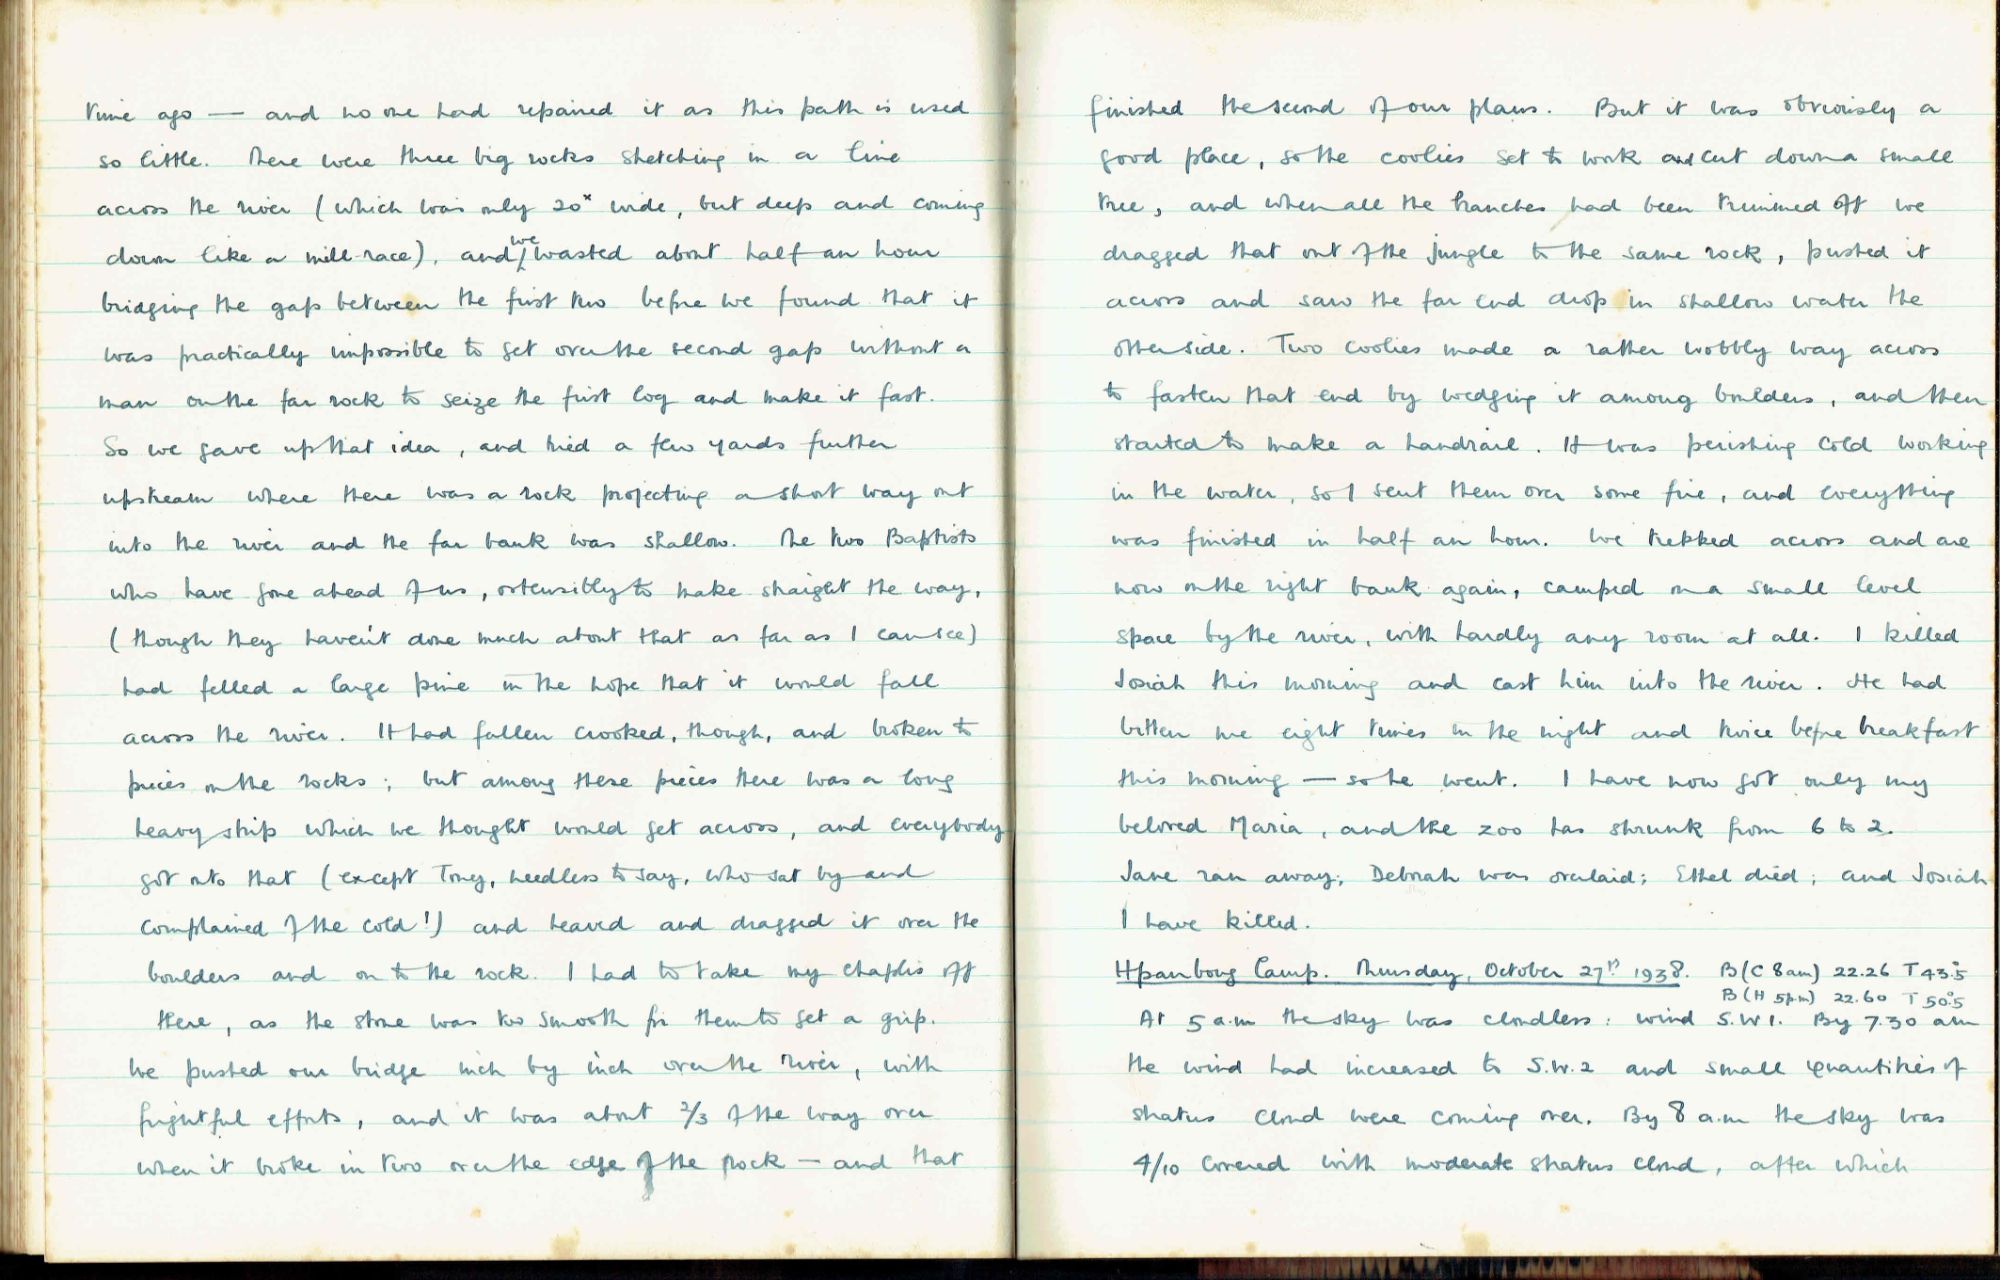 time ago — and no one had repaired it as this path is used
so little. There were three big rocks stretching in a line
across the river (which was only 20ˣ wide, but deep and coming
down like a mill-race), and we wasted about half an hour
bridging the gap between the first two before we found that it
was practically impossible to get over the second gap without a
man on the far rock to seize the first log and make it fast.
So we gave up that idea, and tried a few yards further
upstream where there was a rock projecting a short way out
into the river and the far bank was shallow. The two Baptists
who have gone ahead of us, ostensibly to make straight the way,
(though they haven't done much about that as far as I can see)
had felled a large pine in the hope that it would fall
across the river. It had fallen crooked, though, and broken to
pieces on the rocks; but among these pieces there was a long
heavy strip which we thought would get across, and everybody
got onto that (except Tony, needless to say, who sat by and
complained of the cold!) and heaved and dragged it over the
boulders and on to the rock. I had to take my chaplis off
there, as the stone was too smooth for them to get a grip.
We pushed our bridge inch by inch over the river, with
frightful efforts, and it was about 2/3 of the way over
when it broke in two over the edge of the rock — and that
finished the second of our plans. But it was obviously a
good place, so the coolies set to work and cut down a small
tree, and when all the branches had been trimmed off we
dragged that out of the jungle to the same rock, pushed it
across and saw the far end drop in shallow water the
other side. Two coolies made a rather wobbly way across
to fasten that end by wedging it among boulders, and then
started to make a handrail. It was perishing cold working
in the water, so I sent them over some fire, and everything
was finished in half an hour. We trekked across and are
now on the right bank again, camped on a small level
space by the river, with hardly any room at all. I killed
Josiah this morning and cast him into the river. He had
bitten me eight times in the night and twice before breakfast
this morning — so he went. I have now got only my
beloved Maria, and the zoo has shrunk from 6 to 2.
Jane ran away; Deborah was overlaid; Ethel died; and Josiah
I have killed.
Hpanbong Camp. Thursday, October 27th 1938. B (C 8am) 22.26 T 43°.5
B (H 5pm) 22.60 T 50°.5
At 5 a.m the sky was cloudless: wind S.W 1. By 7.30 am
the wind had increased to S.W.2 and small quantities of
stratus cloud were coming over. By 8 a.m the sky was
4/10 covered with moderate stratus cloud, after which